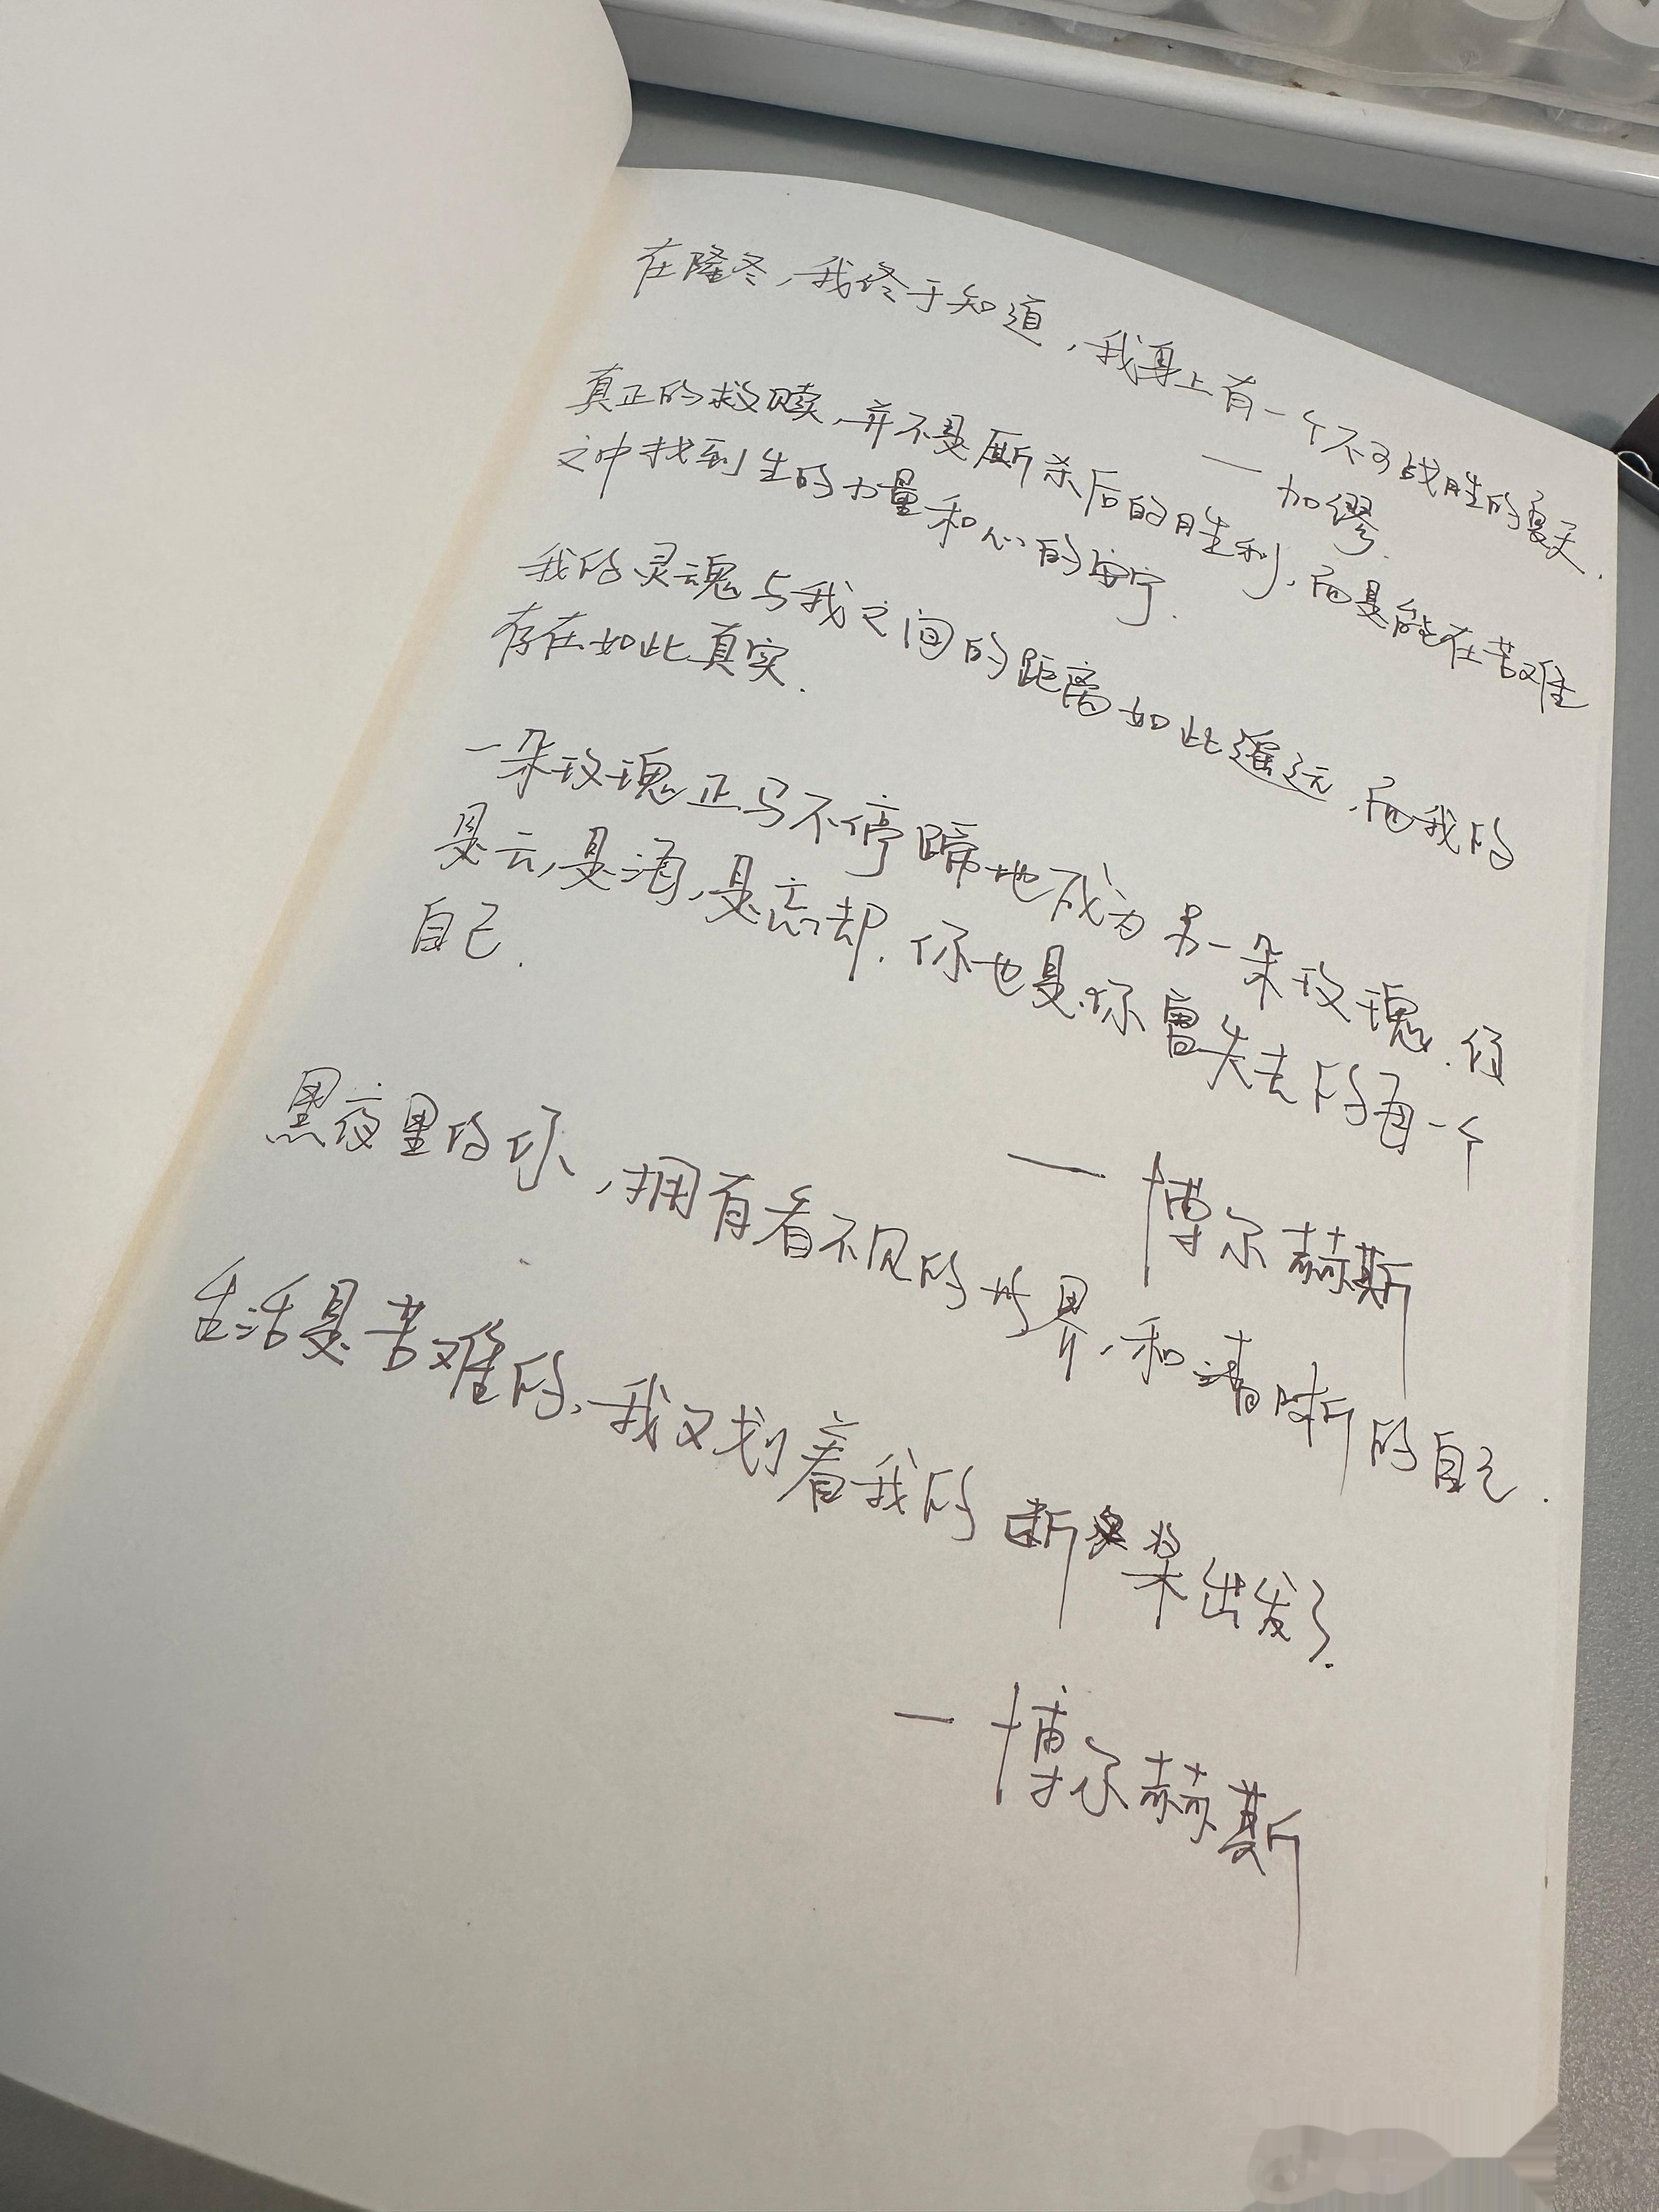 在隆冬，我终于知道，我身上有一个不可战胜的夏天.
— 加缪.
真正的救赎，并不是厮杀后的胜利，而是能在苦难
之中找到生的力量和心的安宁.
我的灵魂与我之间的距离如此遥远，而我的
存在如此真实.
一朵玫瑰正马不停蹄地成为另一朵玫瑰.你
是云，是海，是忘却.你也是你曾失去的每一个
自己.
— 博尔赫斯
黑夜里的你，拥有看不见的世界，和清晰的自己.
生活是苦难的，我又划着我的断桨出发了.
— 博尔赫斯